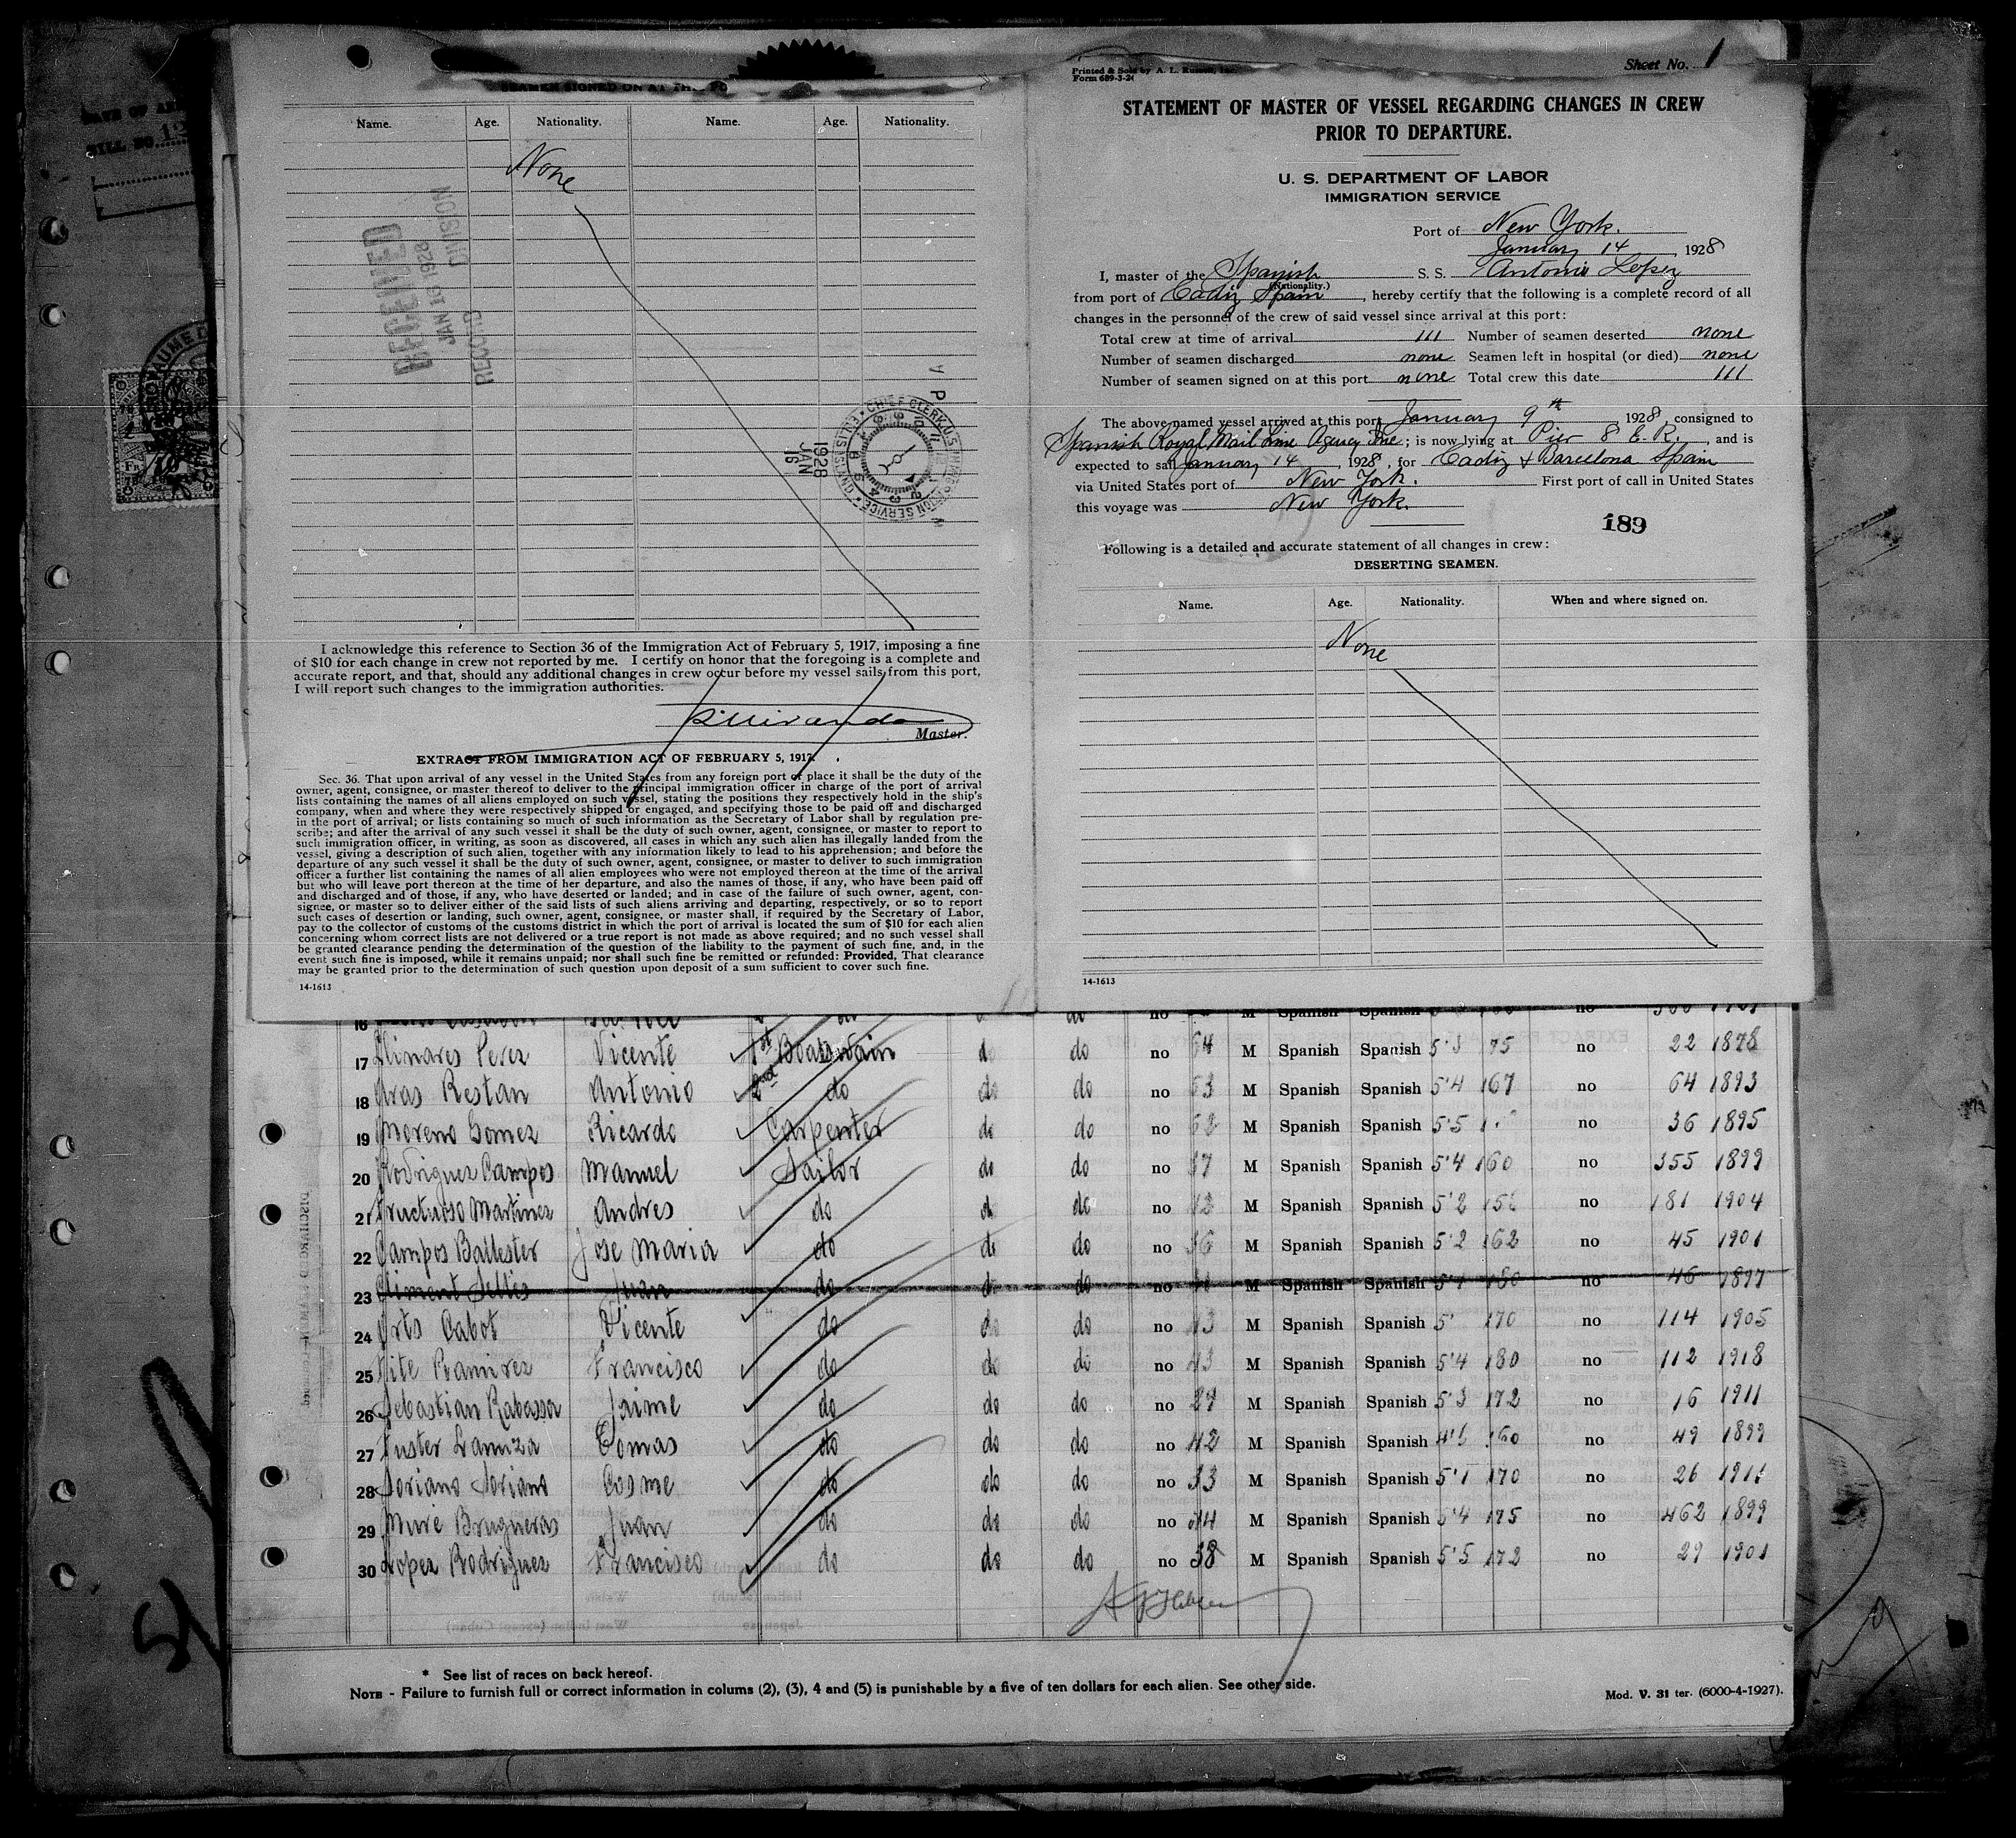 SEAMEN SIGNED ON AT THIS PO
Name. Age. Nationality. Name. Age. Nationality.
None
RECEIVED
JAN 16 1928
RECORD DIVISION
CHIEF CLERK U.S. IMMIGRATION SERVICE ELLIS ISLAND
1928
JAN
16
I acknowledge this reference to Section 36 of the Immigration Act of February 5, 1917, imposing a fine
of $10 for each change in crew not reported by me. I certify on honor that the foregoing is a complete and
accurate report, and that, should any additional changes in crew occur before my vessel sails from this port,
I will report such changes to the immigration authorities.
Master.
EXTRACT FROM IMMIGRATION ACT OF FEBRUARY 5, 1917.
Sec. 36. That upon arrival of any vessel in the United States from any foreign port or place it shall be the duty of the
owner, agent, consignee, or master thereof to deliver to the principal immigration officer in charge of the port of arrival
lists containing the names of all aliens employed on such vessel, stating the positions they respectively hold in the ship's
company, when and where they were respectively shipped or engaged, and specifying those to be paid off and discharged
in the port of arrival; or lists containing so much of such information as the Secretary of Labor shall by regulation pre-
scribe; and after the arrival of any such vessel it shall be the duty of such owner, agent, consignee, or master to report to
such immigration officer, in writing, as soon as discovered, all cases in which any such alien has illegally landed from the
vessel, giving a description of such alien, together with any information likely to lead to his apprehension; and before the
departure of any such vessel it shall be the duty of such owner, agent, consignee, or master to deliver to such immigration
officer a further list containing the names of all alien employees who were not employed thereon at the time of the arrival
but who will leave port thereon at the time of her departure, and also the names of those, if any, who have been paid off
and discharged and of those, if any, who have deserted or landed; and in case of the failure of such owner, agent, con-
signee, or master so to deliver either of the said lists of such aliens arriving and departing, respectively, or so to report
such cases of desertion or landing, such owner, agent, consignee, or master shall, if required by the Secretary of Labor,
pay to the collector of customs of the customs district in which the port of arrival is located the sum of $10 for each alien
concerning whom correct lists are not delivered or a true report is not made as above required; and no such vessel shall
be granted clearance pending the determination of the question of the liability to the payment of such fine, and, in the
event such fine is imposed, while it remains unpaid; nor shall such fine be remitted or refunded: Provided, That clearance
may be granted prior to the determination of such question upon deposit of a sum sufficient to cover such fine.
14-1613
Printed & Sold by A. L. Russell, Inc.
Form 689-3-24
Sheet No. 1
STATEMENT OF MASTER OF VESSEL REGARDING CHANGES IN CREW
PRIOR TO DEPARTURE.
U. S. DEPARTMENT OF LABOR
IMMIGRATION SERVICE
Port of New York.
January 14, 1928
I, master of the Spanish S. S. Antonio Lopez
(Nationality.)
from port of Cadiz Spain, hereby certify that the following is a complete record of all
changes in the personnel of the crew of said vessel since arrival at this port:
Total crew at time of arrival 111 Number of seamen deserted none
Number of seamen discharged none Seamen left in hospital (or died) none
Number of seamen signed on at this port none Total crew this date 111
The above-named vessel arrived at this port January 9th 1928, consigned to
Spanish Royal Mail Line Agency Inc; is now lying at Pier 8 E. R., and is
expected to sail January 14, 1928, for Cadiz & Barcelona Spain
via United States port of New York. First port of call in United States
this voyage was New York.
189
Following is a detailed and accurate statement of all changes in crew:
DESERTING SEAMEN.
Name. Age. Nationality. When and where signed on.
None
14-1613
16 do do no M Spanish Spanish no
17 Llinares Perez Vicente 1st Boatswain do do no 54 M Spanish Spanish 5'3 175 no 22 1878
18 Aras Restan Antonio 2nd do do do no 53 M Spanish Spanish 5'4 167 no 64 1893
19 Moreno Gomez Ricardo Carpenter do do no M Spanish Spanish 5'5 no 36 1895
20 Rodriguez Campos Manuel Sailor do do no M Spanish Spanish 5'4 160 no 355 1899
21 Fructuoso Martinez Andres do do do no M Spanish Spanish 5'2 no 181 1904
22 Campos Ballester Jose Maria do do do no M Spanish Spanish 5'2 162 no 45 1901
23 Climent Selles Juan do do do no M Spanish Spanish 180 no 46 1897
24 Orts Cabot Vicente do do do no 43 M Spanish Spanish 170 no 114 1905
25 Ramirez Francisco do do di no 43 M Spanish Spanish 5'4 180 no 112 1918
26 Sebastian Rabassa Jaime do do do no M Spanish Spanish 5'3 172 no 16 1911
27 Fuster Tomas do do do no 42 M Spanish Spanish 160 no 49 1899
28 Soriano Soriano Cosme do do do no 33 M Spanish Spanish 5'1 170 no 26 1911
29 Mure Brugueras Juan do do do no 44 M Spanish Spanish 5'4 175 no 462 1899
30 Lopez Rodriguez Francisco do do do no 38 M Spanish Spanish 5'5 172 no 29 1901
* See list of races on back hereof.
NOTE - Failure to furnish full or correct information in colums (2), (3), 4 and (5) is punishable by a five of ten dollars for each alien. See other side.
Mod. V. 31 ter. (6000-4-1927).